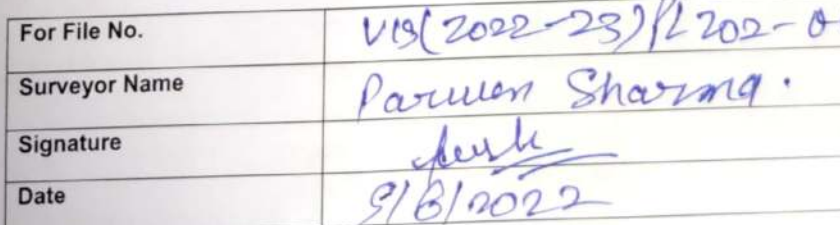 For File No. VIS(2022-23)/PL202-0
Surveyor Name Parveen Sharma.
Signature
Date 9/8/2022